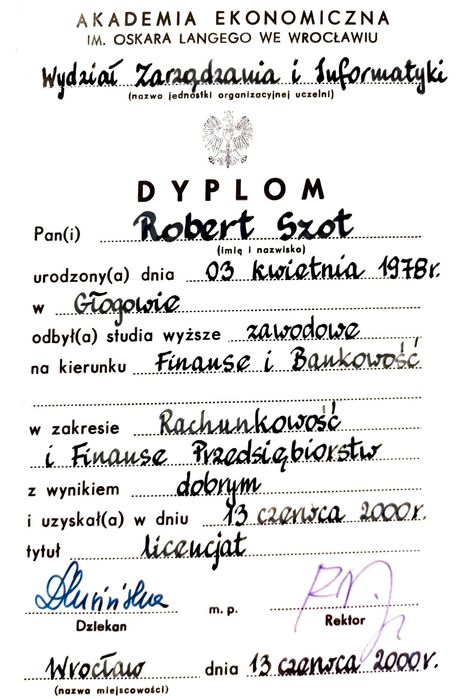 AKADEMIA EKONOMICZNA
IM. OSKARA LANGEGO WE WROCŁAWIU
Wydział Zarządzania i Informatyki
(nazwa jednostki organizacyjnej uczelni)
DYPLOM
Pan(i) Robert Szot
(imię i nazwisko)
urodzony(a) dnia 03 kwietnia 1978r.
w Głogowie
odbył(a) studia wyższe zawodowe
na kierunku Finanse i Bankowość
w zakresie Rachunkowość
i Finanse Przedsiębiorstw
z wynikiem dobrym
i uzyskał(a) w dniu 13 czerwca 2000r.
tytuł licencjat
m. p.
Dziekan Rektor
Wrocław dnia 13 czerwca 2000r.
(nazwa miejscowości)